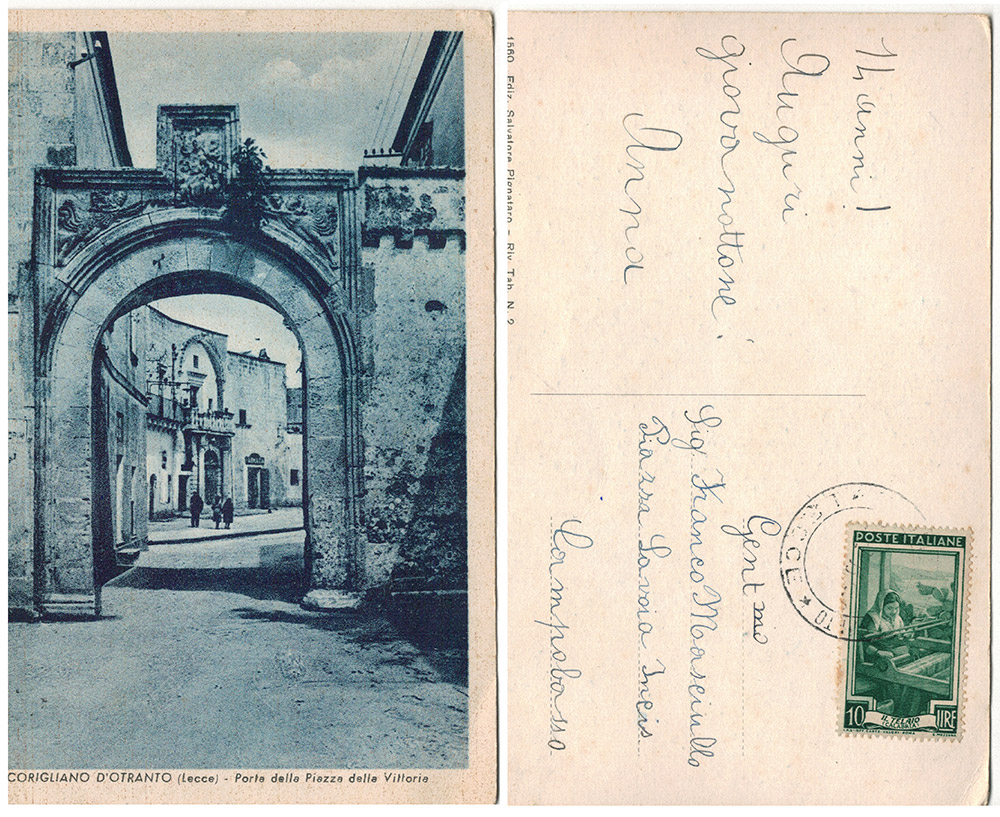 CORIGLIANO D'OTRANTO (Lecce) - Porta della Piazza della Vittoria
1560 Ediz. Salvatore Pignataro - Riv. Tab. N. 2
14 anni!
Auguri
giovanottone!
Anna
Gent.mo
Sig. Franco Masciullo
Piazza Savoia Incis
Campobasso
POSTE ITALIANE
10 LIRE
IL TELAIO
(CALABRIA)